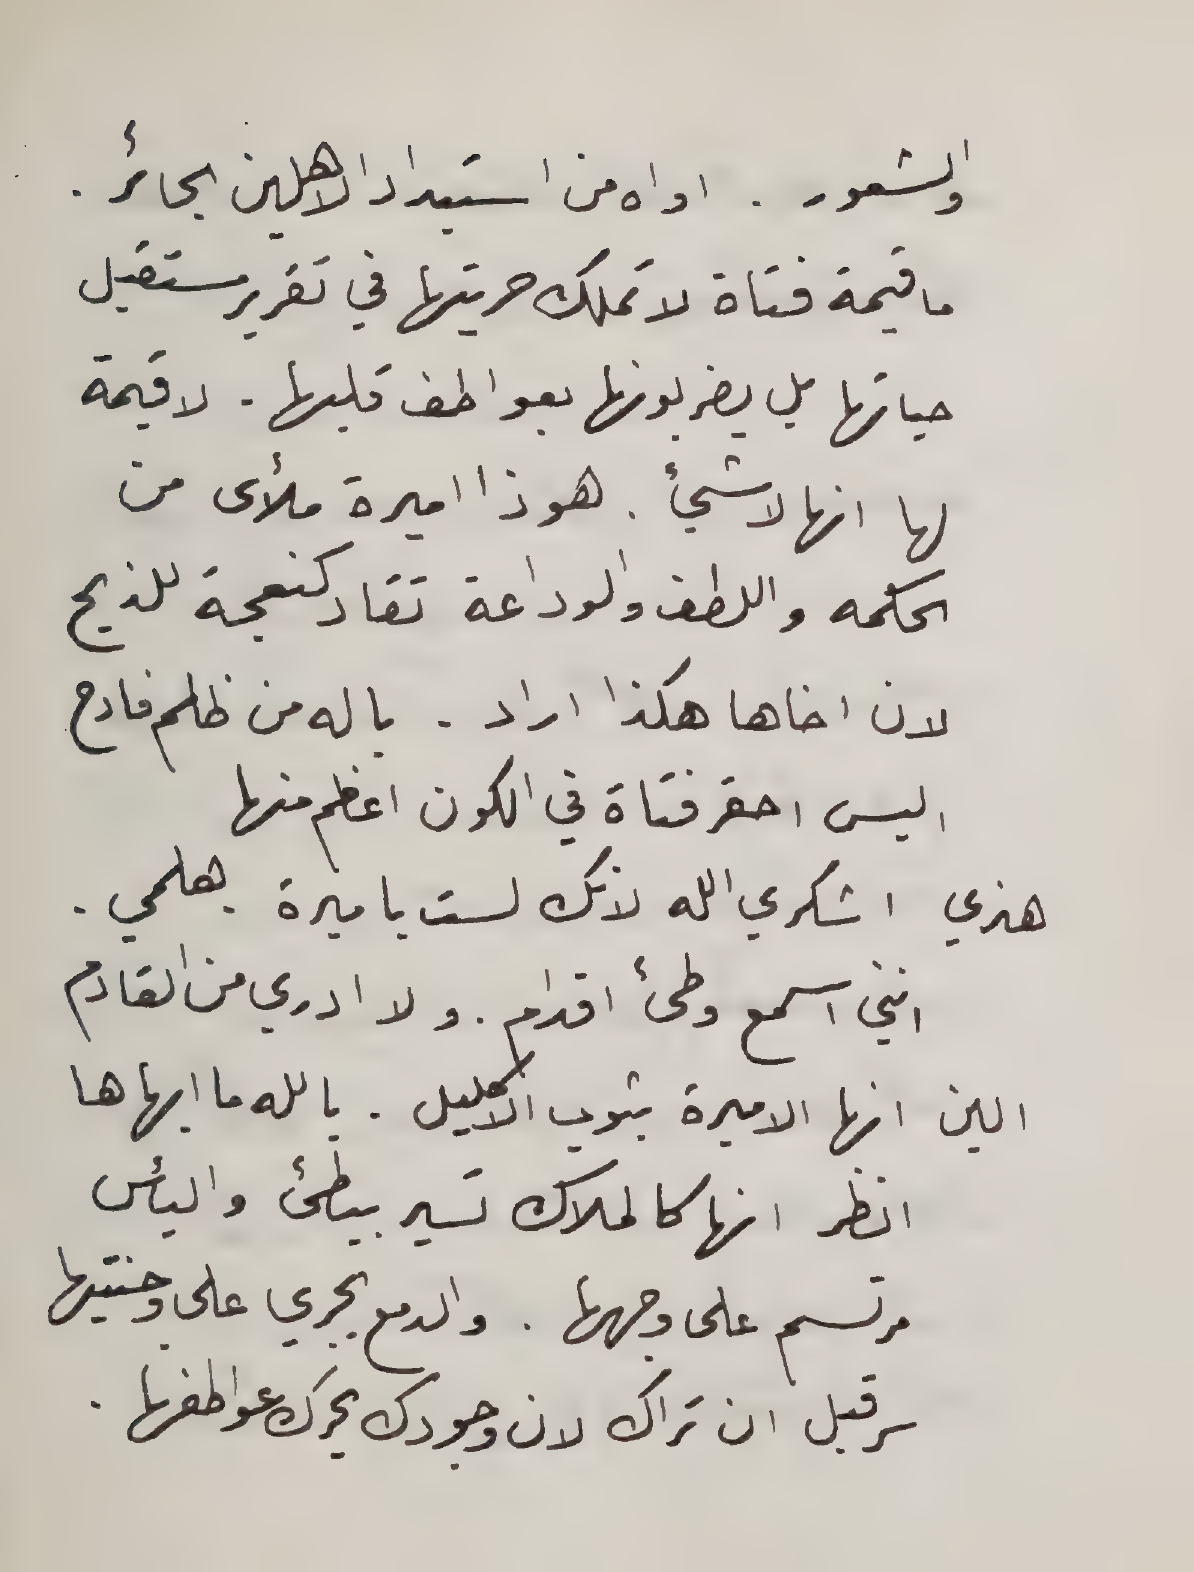 والشعور . اواه من استبداد الاهلين الجائر .
ما قيمة فتاة لا تملك حريتها في تقرير مستقبل
حياتها بل يضربونها بعواطف قلبها . لا قيمة
لها انها لا شيئ . هوذا اميرة ملأى من
الحكمه واللطف والوداعة تقاد كنعجة للذبح
لان اخاها هكذا اراد . ياله من ظلم فادح
اليس احقر فتاة في الكون اعظم منها
هنري اشكري الله لانك لست باميرة . بهلمي .
انني اسمع وطئ اقدام . ولا ادري من القادم
الين انها الاميرة بثوب الاكليل . يالله ما ابهاها
انظر انها كالملاك تسير ببطئ واليأس
مرتسم على وجهها . والدمع يجري على وجنتيها
سر قبل ان تراك لان وجودك يحرك عواطفها .